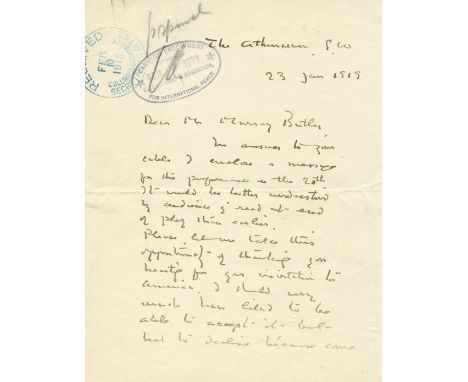 RECEIVED
FEB
1919
CARNEGIE ENDOWMENT
1919
EDUCATION
FOR INTERNATIONAL PEACE
The Athenaeum, S.W
23 Jan 1919
Dear Mr Murray Butler,
In answer to your
cable I enclose a message
for the performance on the 28th
It would be better understood
by audience if read at end
of play than earlier.
Please let me take this
opportunity of thanking you
heartily for your invitation to
America. I should very
much have liked to be
able to accept it but
had to decline because some